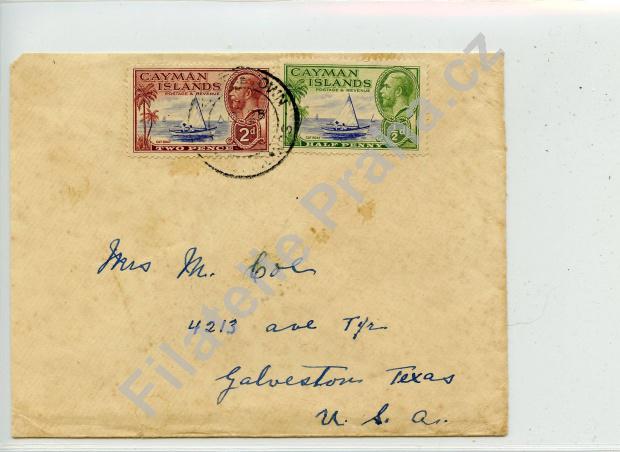 CAYMAN
ISLANDS
POSTAGE & REVENUE
CAT BOAT
2d
TWO PENCE
CAYMAN
ISLANDS
POSTAGE & REVENUE
CAT BOAT
½d
HALF PENNY
Mrs M. Cole
4213 ave
Galveston Texas
U. S. A.
Filatelie Praha.cz